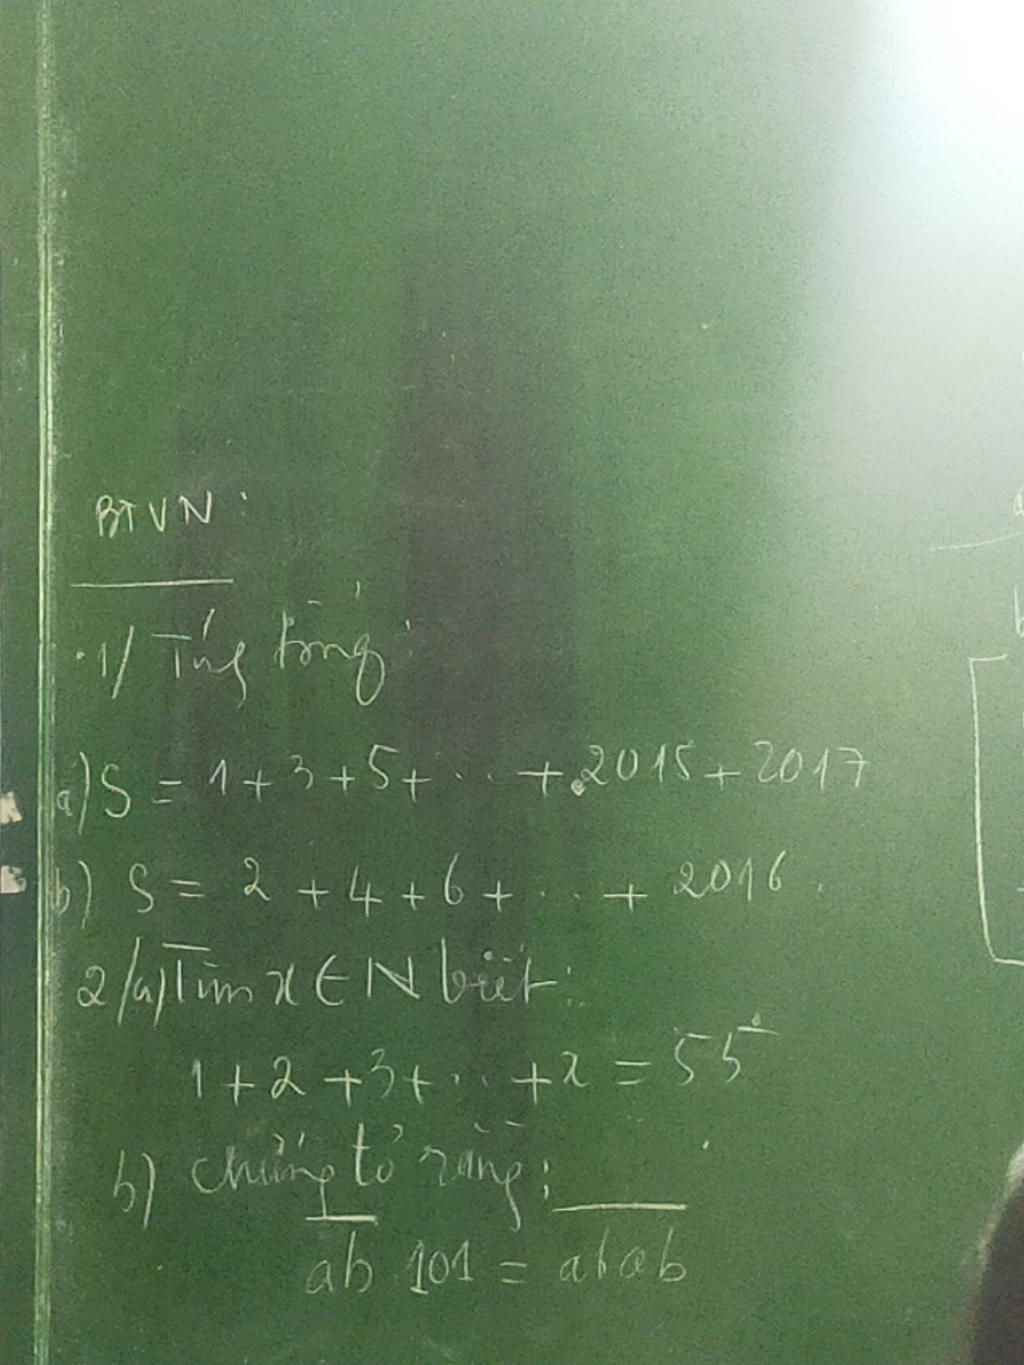 BTVN:
1/ Tính tổng:
a) S = 1 + 3 + 5 + ... + 2015 + 2017
b) S = 2 + 4 + 6 + ... + 2016.
2/a) Tìm x ∈ N biết:
1 + 2 + 3 + ... + x = 55
b) chứng tỏ rằng:
a̅b̅ 101 = a̅b̅a̅b̅